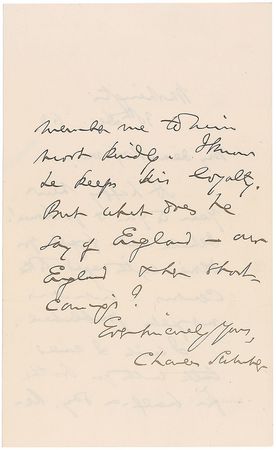 member me to him
most kindly. I know
he keeps his loyalty.
But what does he
say of England — our
England & her short-
comings?
Ever sincerely Yours,
Charles Sumner